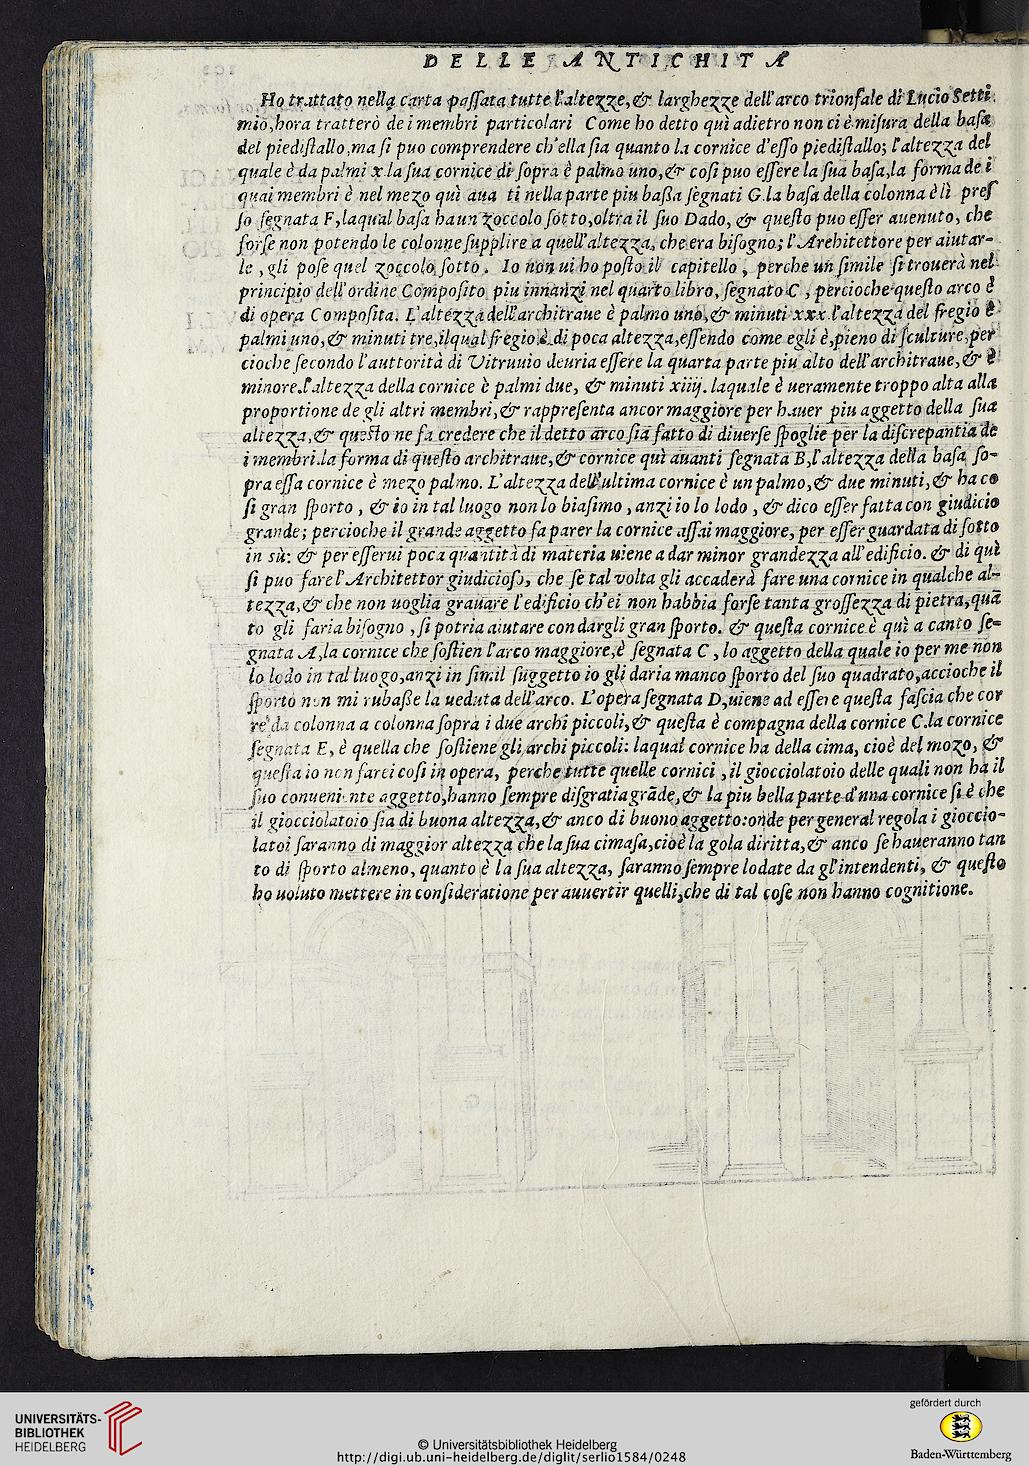 DELLE ANTICHITA
Ho trattato nella carta passata tutte l'altezze, & larghezze dell'arco trionfale di Lucio Setti
mio, hora tratterò de i membri particolari Come ho detto quì adietro non ci è misura della basa
del piedistallo, ma si puo comprendere ch'ella sia quanto la cornice d'esso piedistallo; l'altezza del
quale è da palmi x. la sua cornice di sopra è palmo uno, & cosi puo essere la sua basa, la forma de i
quai membri è nel mezo quì aua ti nella parte piu baßa segnati G. la basa della colonna è lì pres
so segnata F, laqual basa ha un zoccolo sotto, oltra il suo Dado, & questo puo esser auenuto, che
forse non potendo le colonne supplire a quell'altezza, che era bisogno; l'Architettore per aiutar-
le, gli pose quel zoccolo sotto. Io non ui ho posto il capitello, perche un simile si trouerà nel
principio dell'ordine Composito piu innanzi nel quarto libro, segnato C, percioche questo arco è
di opera Composita. L'altezza dell'architraue è palmo uno, & minuti xxx. l'altezza del fregio è
palmi uno, & minuti tre, il qual fregio è di poca altezza, essendo come egli è, pieno di sculture, per
cioche secondo l'auttorità di Vitruuio deuria essere la quarta parte piu alto dell'architraue, & è
minore. l'altezza della cornice è palmi due, & minuti xiiij. laquale è ueramente troppo alta alla
proportione de gli altri membri, & rappresenta ancor maggiore per hauer piu aggetto della sua
altezza, & questo ne fa credere che il detto arco sia fatto di diuerse spoglie per la discrepantia de
i membri. la forma di questo architraue, & cornice quì auanti segnata B, l'altezza della basa so-
pra essa cornice è mezo palmo. L'altezza dell'ultima cornice è un palmo, & due minuti, & ha co
si gran sporto, & io in tal luogo non lo biasimo, anzi io lo lodo, & dico esser fatta con giudicio
grande; percioche il grande aggetto fa parer la cornice assai maggiore, per esser guardata di sotto
in sù: & per esserui poca quantità di materia uiene a dar minor grandezza all'edificio. & di quì
si puo fare l'Architettor giudicioso, che se tal volta gli accaderà fare una cornice in qualche al-
tezza, & che non uoglia grauare l'edificio ch'ei non habbia forse tanta grossezza di pietra, quā
to gli faria bisogno, si potria aiutare con dargli gran sporto. & questa cornice è quì a canto se-
gnata A, la cornice che sostien l'arco maggiore, è segnata C, lo aggetto della quale io per me non
lo lodo in tal luogo, anzi in simil suggetto io gli daria manco sporto del suo quadrato, accioche il
sporto non mi rubaße la ueduta dell'arco. L'opera segnata D, uiene ad essere questa fascia che cor
re da colonna a colonna sopra i due archi piccoli, & questa è compagna della cornice C. la cornice
segnata E, è quella che sostiene gli archi piccoli: laqual cornice ha della cima, cioè del mozo, &
questa io non farei cosi in opera, perche tutte quelle cornici, il giocciolatoio delle quali non ha il
suo conueniente aggetto, hanno sempre disgratia grāde, & la piu bella parte d'una cornice si è che
il giocciolatoio sia di buona altezza, & anco di buono aggetto: onde per general regola i gioccio-
latoi saranno di maggior altezza che la sua cimasa, cioè la gola diritta, & anco se haueranno tan
to di sporto almeno, quanto è la sua altezza, saranno sempre lodate da gl'intendenti, & questo
ho uoluto mettere in consideratione per auuertir quelli, che di tal cose non hanno cognitione.
UNIVERSITÄTS-
BIBLIOTHEK
HEIDELBERG
© Universitätsbibliothek Heidelberg
http://digi.ub.uni-heidelberg.de/diglit/serlio1584/0248
gefördert durch
Baden-Württemberg